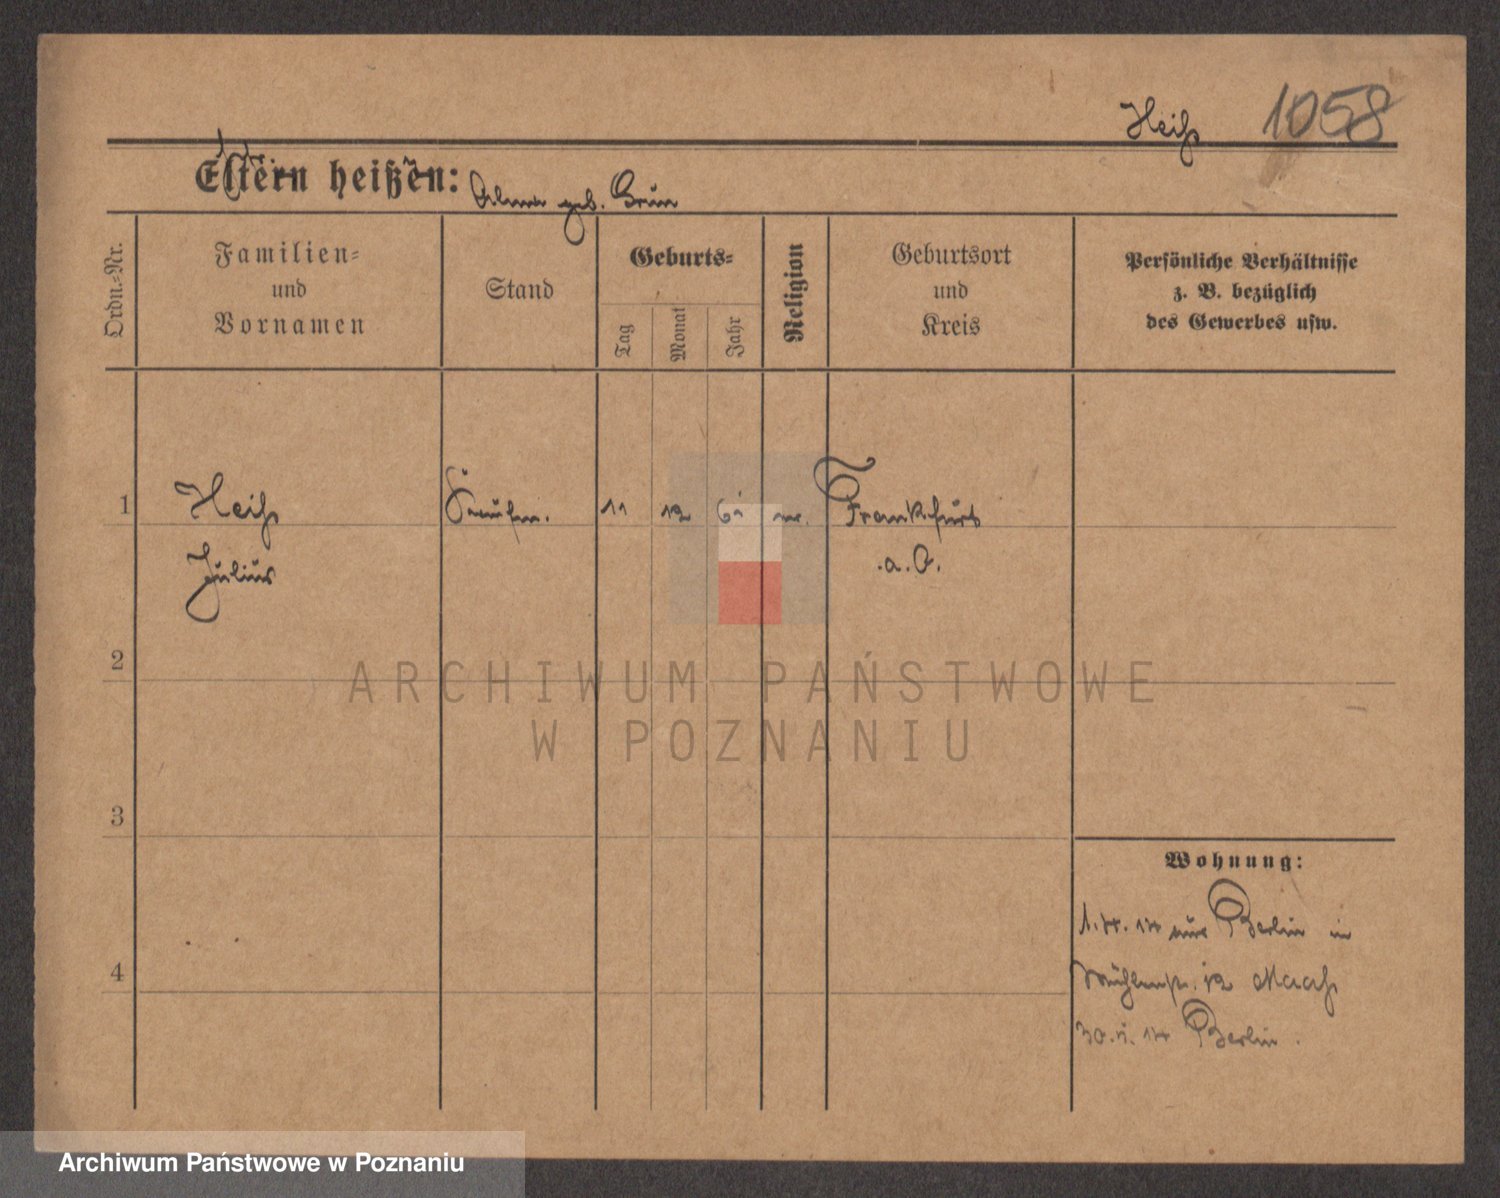 Heiß 1058
Eltern heißen: Alma geb. Grün
Ordn.-Nr.
Familien-
und
Vornamen
Stand
Geburts-
Tag
Monat
Jahr
Religion
Geburtsort
und
Kreis
Persönliche Verhältnisse
z. B. bezüglich
des Gewerbes usw.
1 Heiß Kaufm. 11 12 Frankfurt
Julius a. O.
2
ARCHIWUM PAŃSTWOWE
W POZNANIU
3
Wohnung:
aus Berlin in
4
12 Maaß
Berlin.
Archiwum Państwowe w Poznaniu